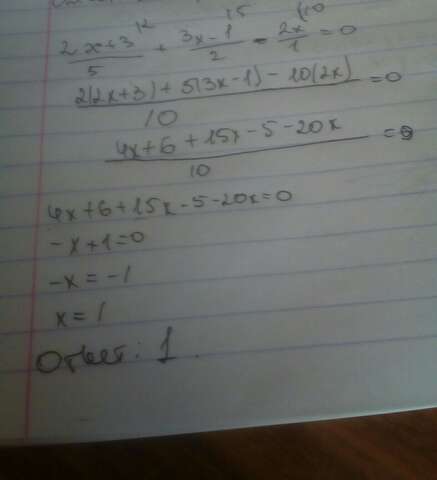 (2x+3)/5 |2 + (3x-1)/2 |5 - 2x/1 |10 = 0
(2(2x+3)+5(3x-1)-10(2x))/10 = 0
(4x+6+15x-5-20x)/10 = 0
4x+6+15x-5-20x=0
-x+1=0
-x=-1
x=1
Ответ: 1.